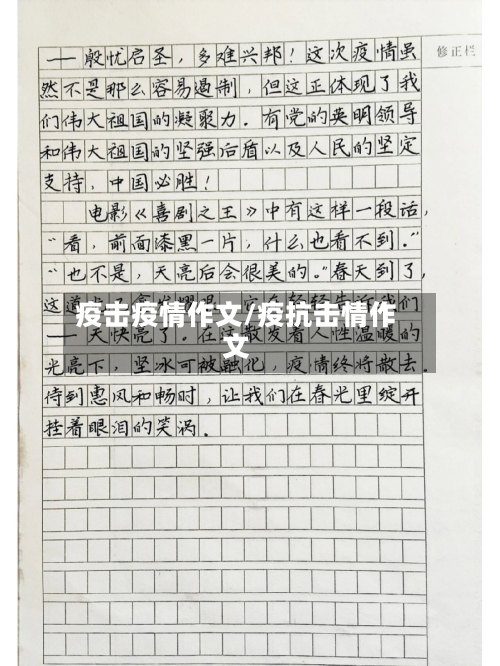 —殷忧启圣，多难兴邦！这次疫情虽
修正栏
然不是那么容易遏制，但这正体现了我
们伟大祖国的凝聚力。有党的英明领导
和伟大祖国的坚强后盾以及人民的坚定
支持，中国必胜！
电影《喜剧之王》中有这样一段话，
“看，前面漆黑一片，什么也看不到。”
“也不是，天亮后会很美的。”春天到了，
这道 我们
疫击疫情作文/疫抗击情作
文
—天快亮了。在这散发着人性温暖的
光亮下，坚冰可被融化，疫情终将散去。
待到惠风和畅时，让我们在春光里绽开
挂着眼泪的笑涡。